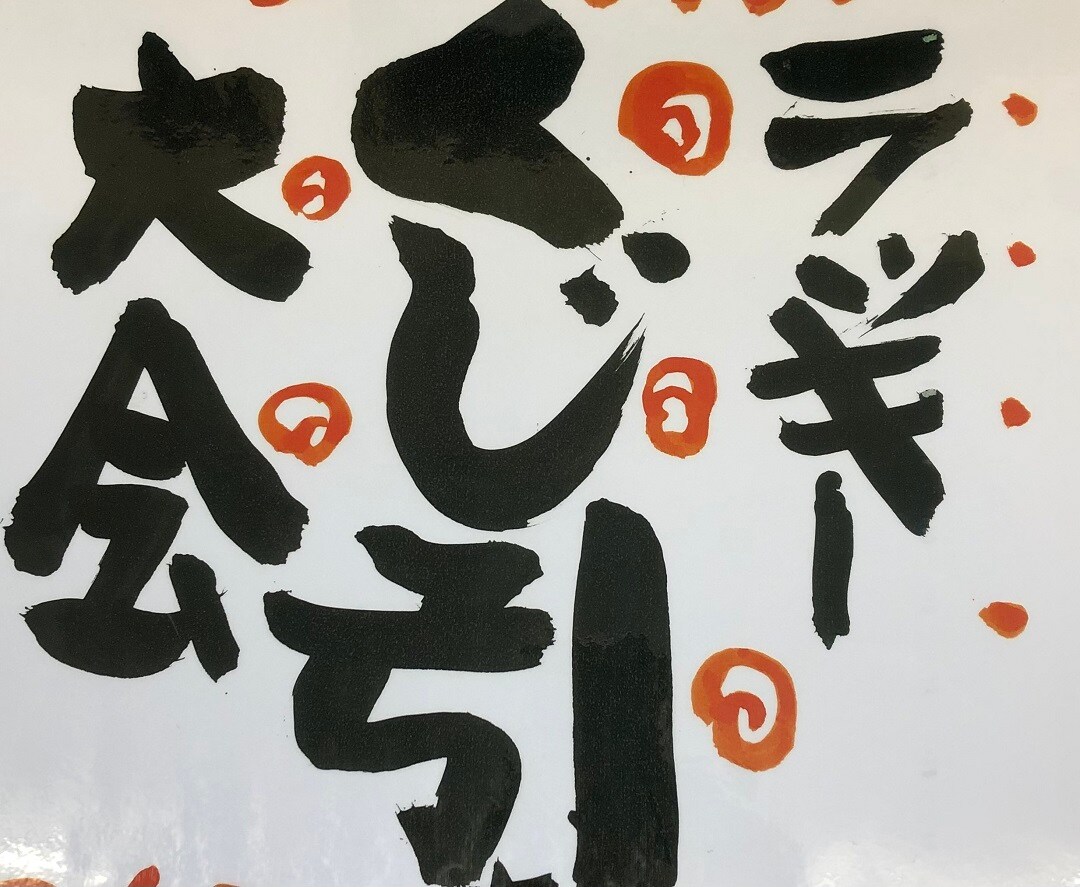 ラッキー
くじ引
大会